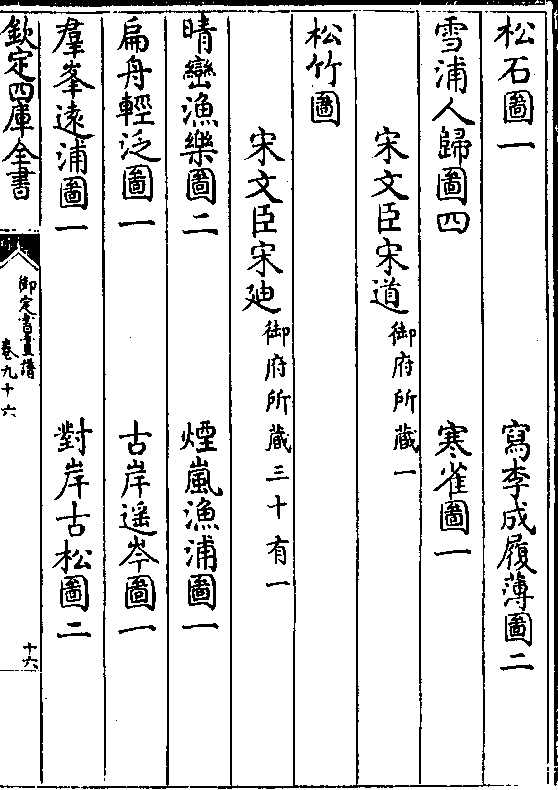 松石圖一 寫李成履薄圖二
雪浦人歸圖四 寒雀圖一
宋文臣宋道御府所藏一
松竹圖
宋文臣宋迪御府所藏三十有一
晴巒漁樂圖二 煙嵐漁浦圖一
扁舟輕泛圖一 古岸遥岑圖一
羣峯遠浦圖一 對岸古松圖二
欽定四庫全書 御定書畫譜 卷九十六 十六